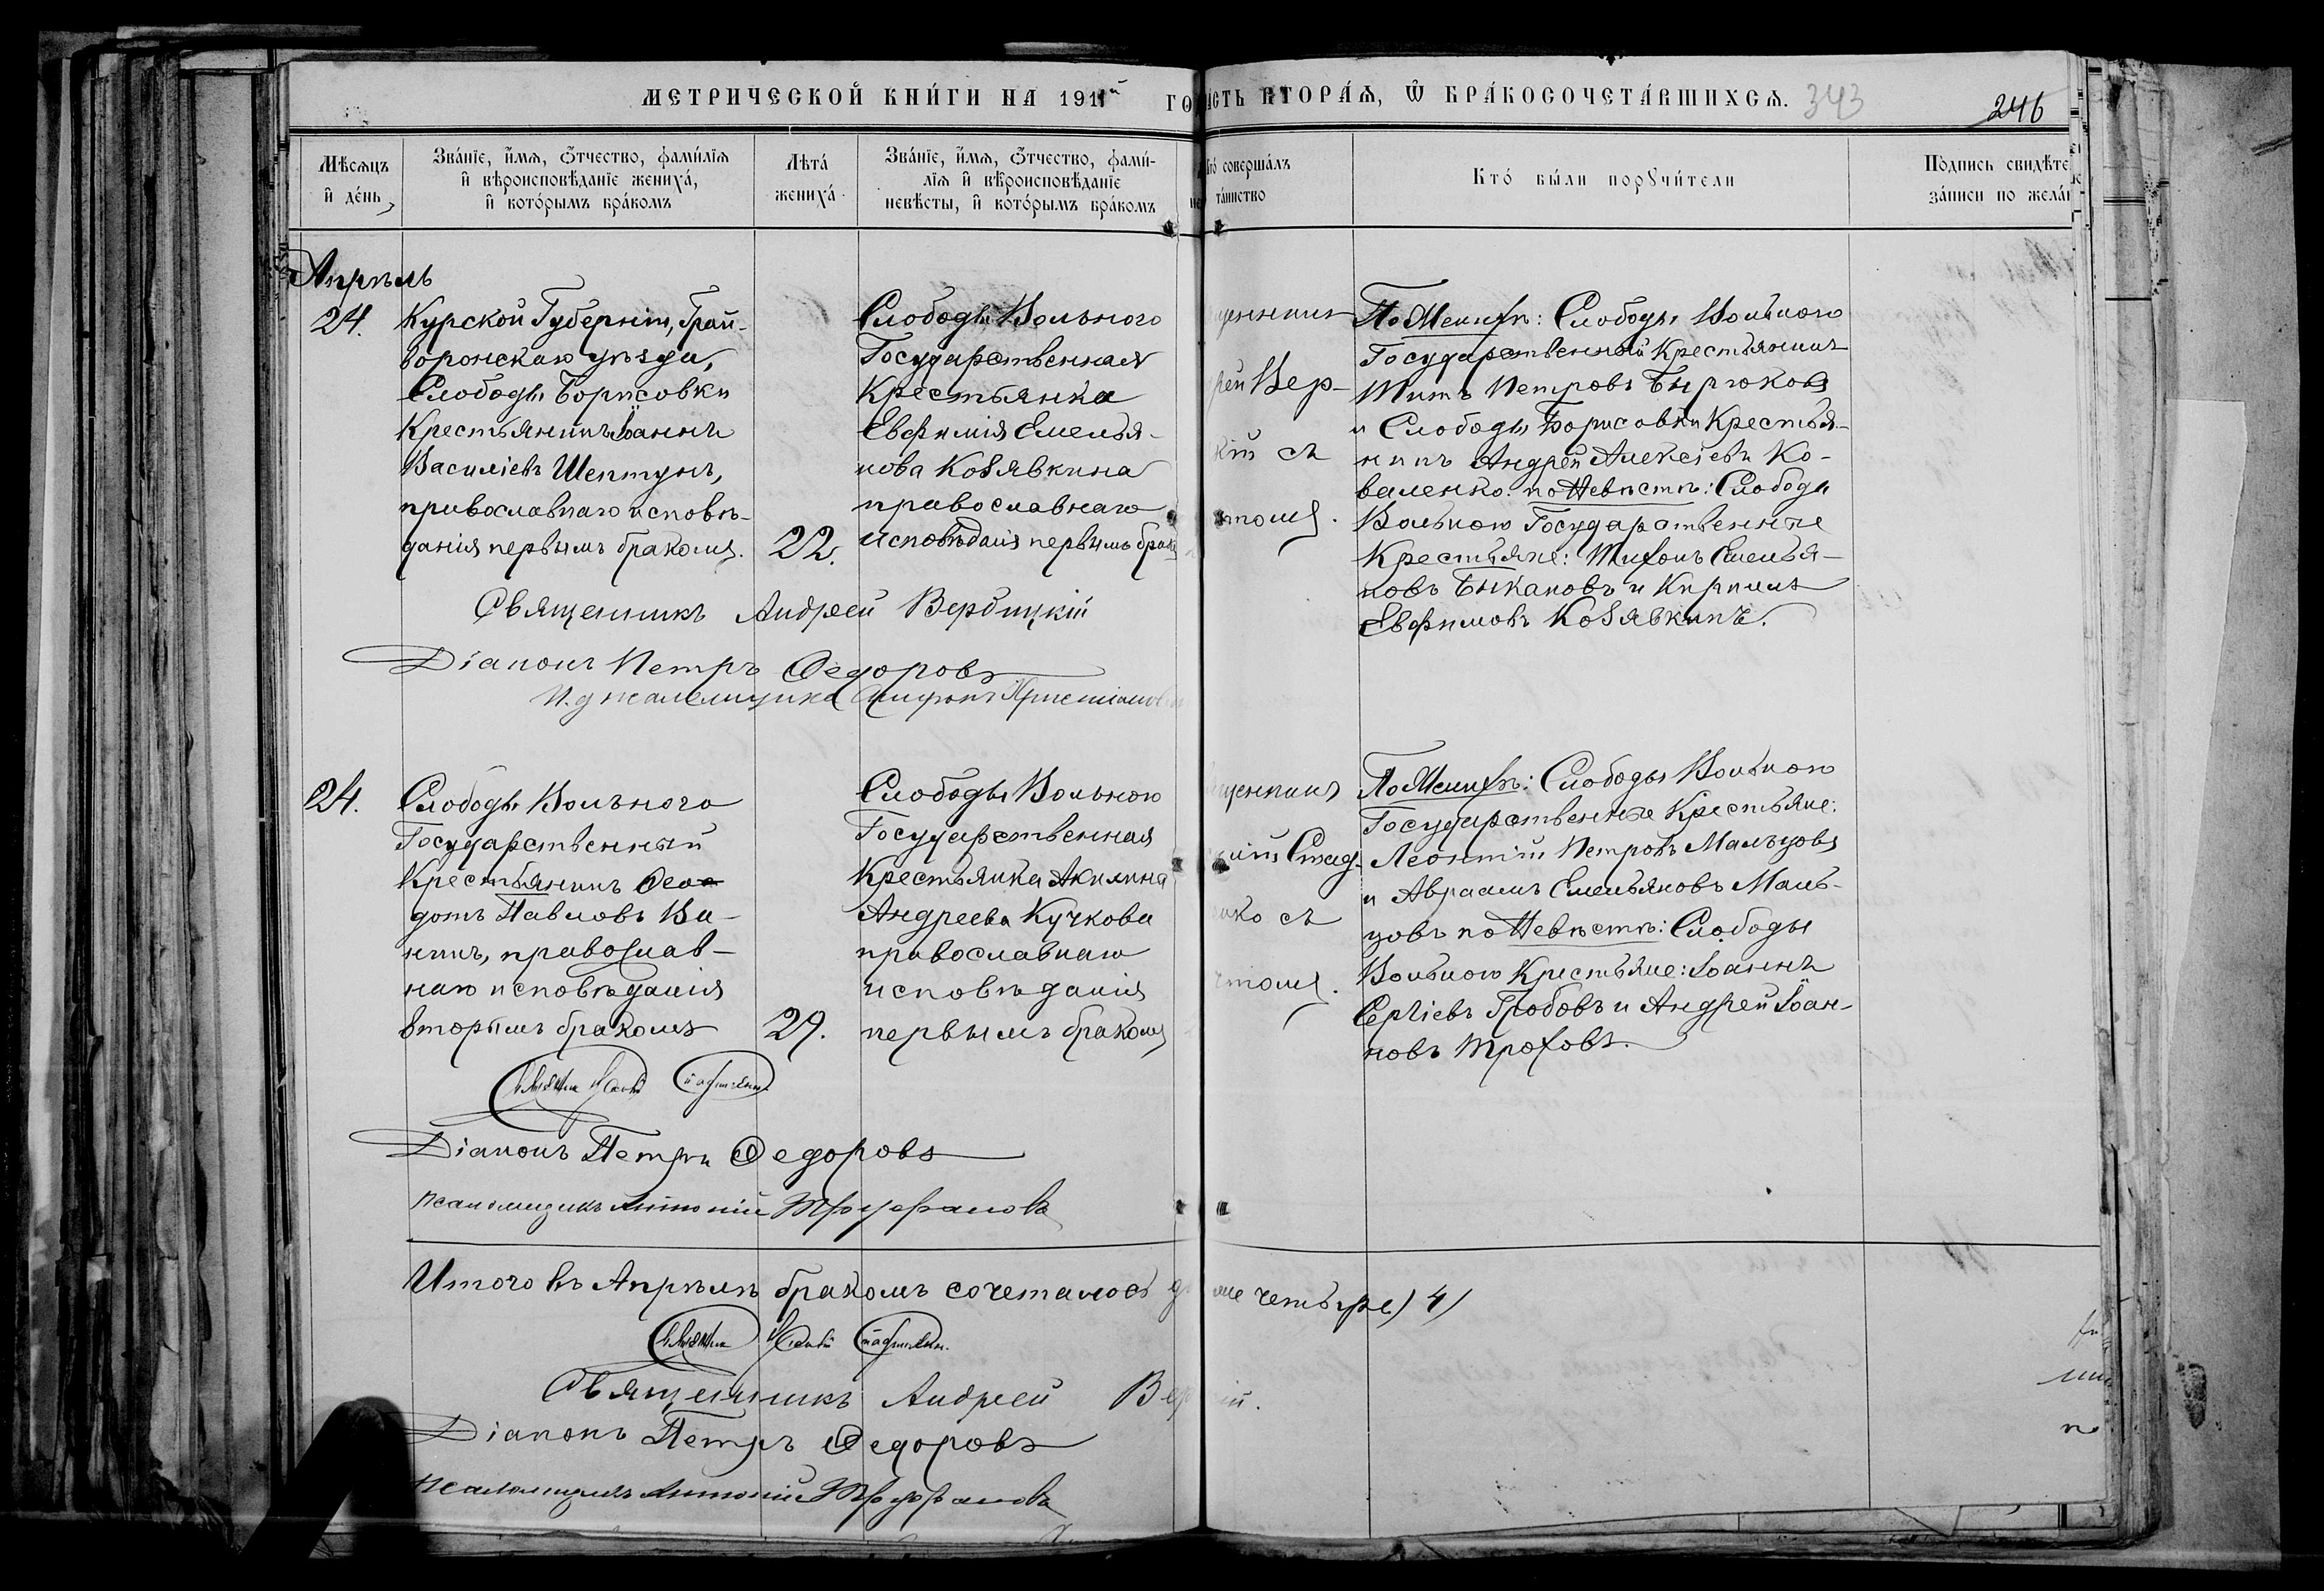 МЕТРИЧЕСКОЙ КНИ́ГИ НА 1911й ГО
АСТЬ ВТОРА́Ѧ, Ѿ БРА́КОСОЧЕТА́ВШИХСѦ. 343
246
Мѣсѧцъ
и҆ де́нь
Зва́нїе, и҆́мѧ, ѻ҆́тчество, фами́лїѧ
и҆ вѣроисповѣ́данїе жениха́,
и҆ кото́рымъ бра́комъ
Лѣта́
жениха́
Зва́нїе, и҆́мѧ, ѻ҆́тчество, фами́-
лїѧ и҆ вѣроисповѣ́данїе
невѣ́сты, и҆ кото́рымъ бра́комъ
то́ соверша́лъ
та́инство
Кто́ бы́ли порꙋчи́тели
По́дпись свидѣ́те
за́писи по жела́
Апрѣль
24.
Курской Губерніи, Грай-
воронскаго уѣзда,
Слободы Борисовки
Крестьянинъ Іоаннъ
Василіевъ Шептунъ,
православнаго исповѣ-
данія первымъ бракомъ.
22.
Слободы Вольного
Государственная
Крестьянка
Евфимія Емелья-
нова Козявкина
православнаго
исповѣданія первымъ брак
щенникъ
рей Вер-
кій съ
томъ.
По Женихѣ: Слободы Вольного
Государственный Крестьянинъ
Титъ Петровъ Бирюковъ
и Слободы Борисовки Крестья-
нинъ Андрей Алексѣевъ Ко-
валенко: по Невѣстѣ: Слободы
Вольного Государственные
Крестьяне: Тихонъ Емелья-
новъ Быкановъ и Кириллъ
Евфимовъ Козявкинъ.
Священникъ Андрей Вербицкій
Діаконъ Петръ Ѳедоровъ
И. д псаломщика
24.
Слободы Вольного
Государственный
Крестьянинъ Ѳео
дотъ Павловъ Ва-
нинъ, православ-
наго исповѣданія
вторымъ бракомъ
29.
Слободы Вольного
Государственная
Крестьянка Акилина
Андреева Кучкова
православнаго
исповѣданія
первымъ бракомъ
щенникъ
Стад-
ко съ
томъ.
По Женихѣ: Слободы Вольного
Государственные Крестьяне:
Леонтій Петровъ Мальцовъ
и Авраамъ Емельяновъ Маль-
цовъ по Невѣстѣ: Слободы
Вольного Крестьяне: Іоаннъ
Сергіевъ Гробовъ и Андрей Іоан-
новъ Трофовъ.
Діаконъ Петръ Ѳедоровъ
Псаломщикъ Антоній Труфановъ
Итого въ Апрѣлѣ бракомъ сочеталось д
четыре) 4)
Священникъ Андрей Вер ій.
Діаконъ Петръ Ѳедоровъ
Псаломщикъ Антоній Труфановъ